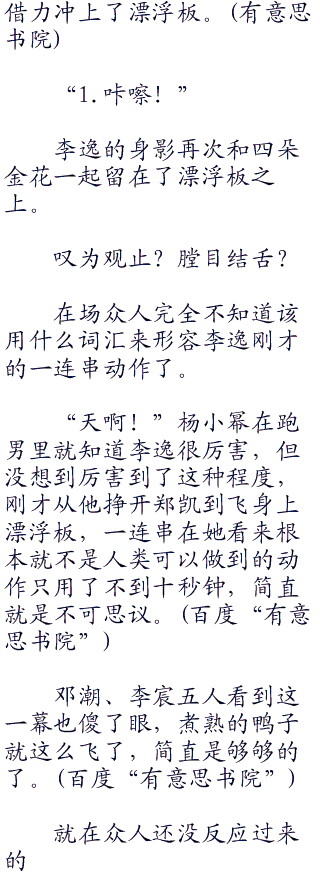 借力冲上了漂浮板。(有意思
书院)
“1.咔嚓！”
李逸的身影再次和四朵
金花一起留在了漂浮板之
上。
叹为观止？瞠目结舌？
在场众人完全不知道该
用什么词汇来形容李逸刚才
的一连串动作了。
“天啊！”杨小幂在跑
男里就知道李逸很厉害，但
没想到厉害到了这种程度，
刚才从他挣开郑凯到飞身上
漂浮板，一连串在她看来根
本就不是人类可以做到的动
作只用了不到十秒钟，简直
就是不可思议。(百度“有意
思书院”)
邓潮、李宸五人看到这
一幕也傻了眼，煮熟的鸭子
就这么飞了，简直是够够的
了。(百度“有意思书院”)
就在众人还没反应过来
的